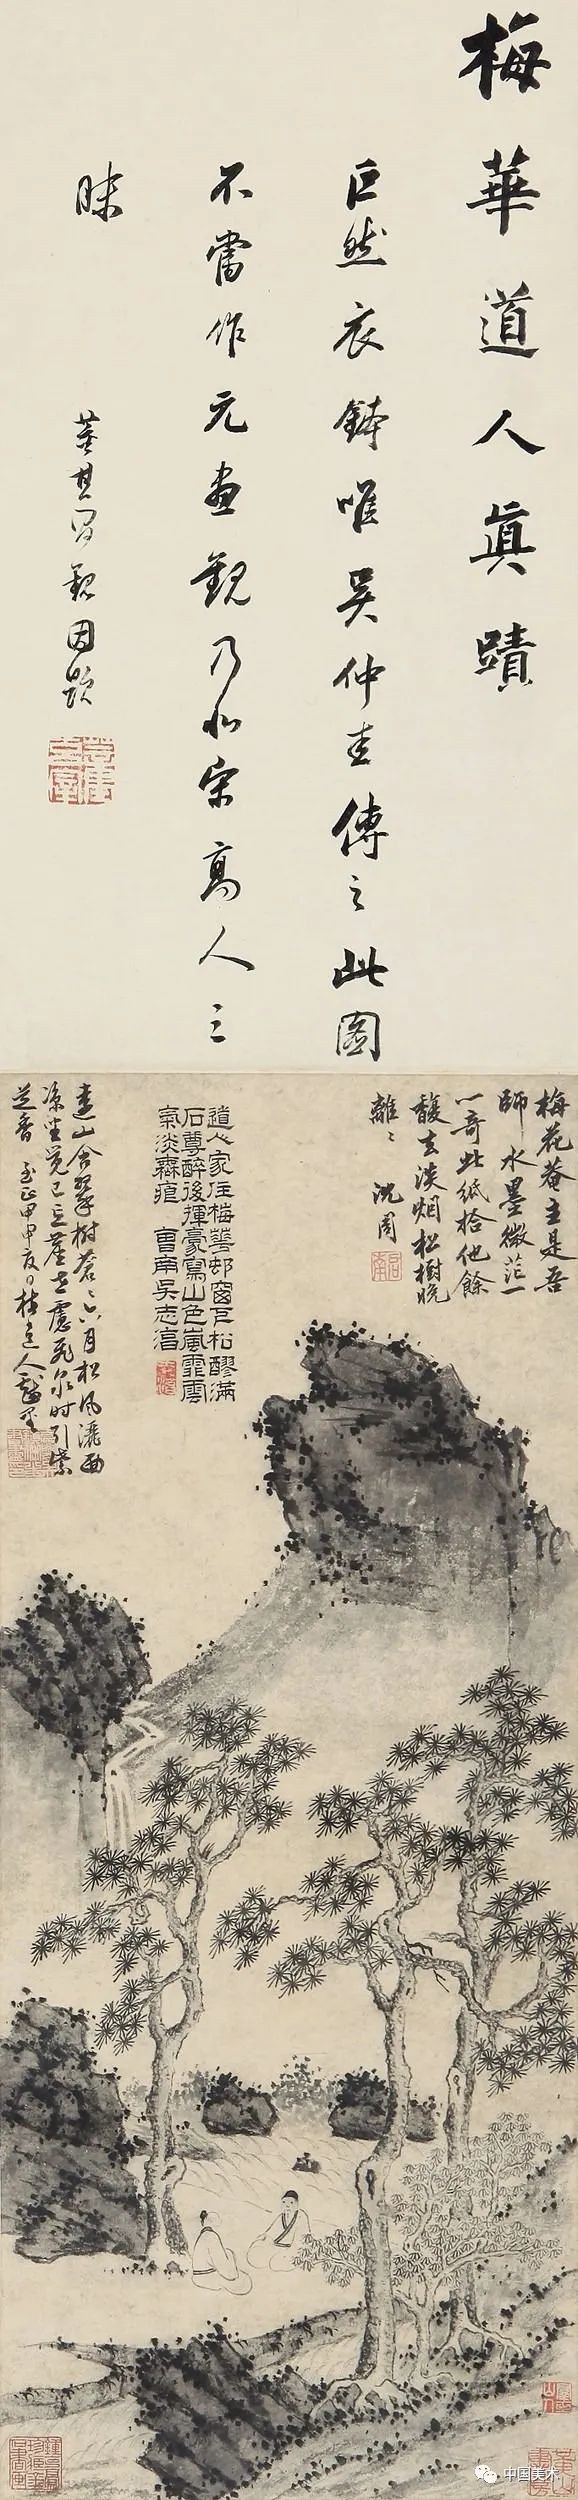 梅華道人真蹟
巨然衣鉢唯吳仲圭傳之此圖
不當作元畫觀乃北宋高人三
昧
董其昌觀因題
梅花菴主是吾
師水墨微茫一
一奇此紙拾他餘
馥去淡烟松樹晚
離〻沈周
道人家住梅華邨窗下松醪滿
石尊醉後揮豪寫山色嵐霏雲
氣淡無痕 曹南吳志淳
遠山含翠樹蒼〻六月松風灑面
涼坐覺已忘塵世慮飛泉時引紫
芝香 至正甲申夏日梅道人戲墨
中国美术